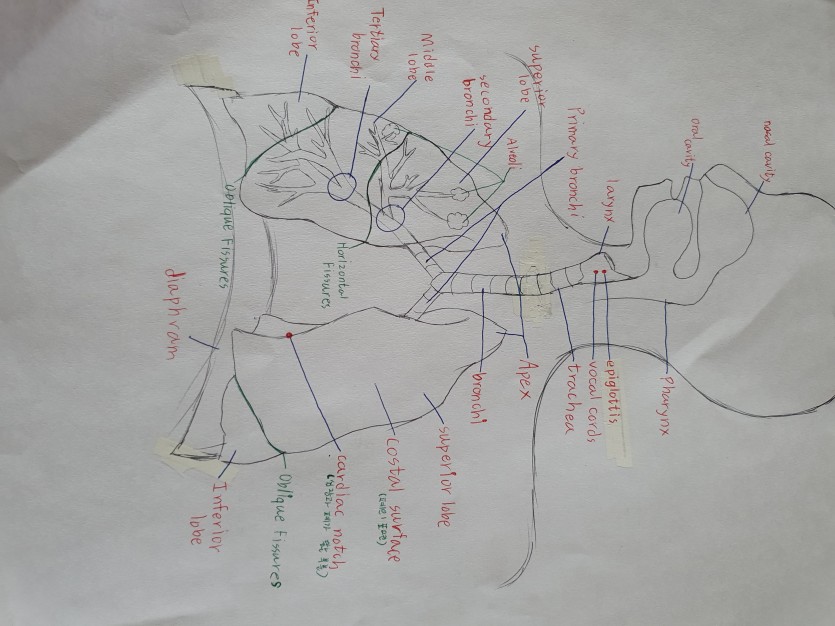 nasal cavity
oral
cavity
Pharynx
larynx
epiglottis
vocal cords
trachea
Primary bronchi
superior
lobe
Alveoli
Apex
secondary
bronchi
bronchi
superior lobe
Middle
lobe
costal surface
Tertiary
bronchi
cardiac notch
Horizontal
Fissures
Inferior
lobe
Oblique Fissures
Oblique Fissures
Inferior
lobe
diaphram